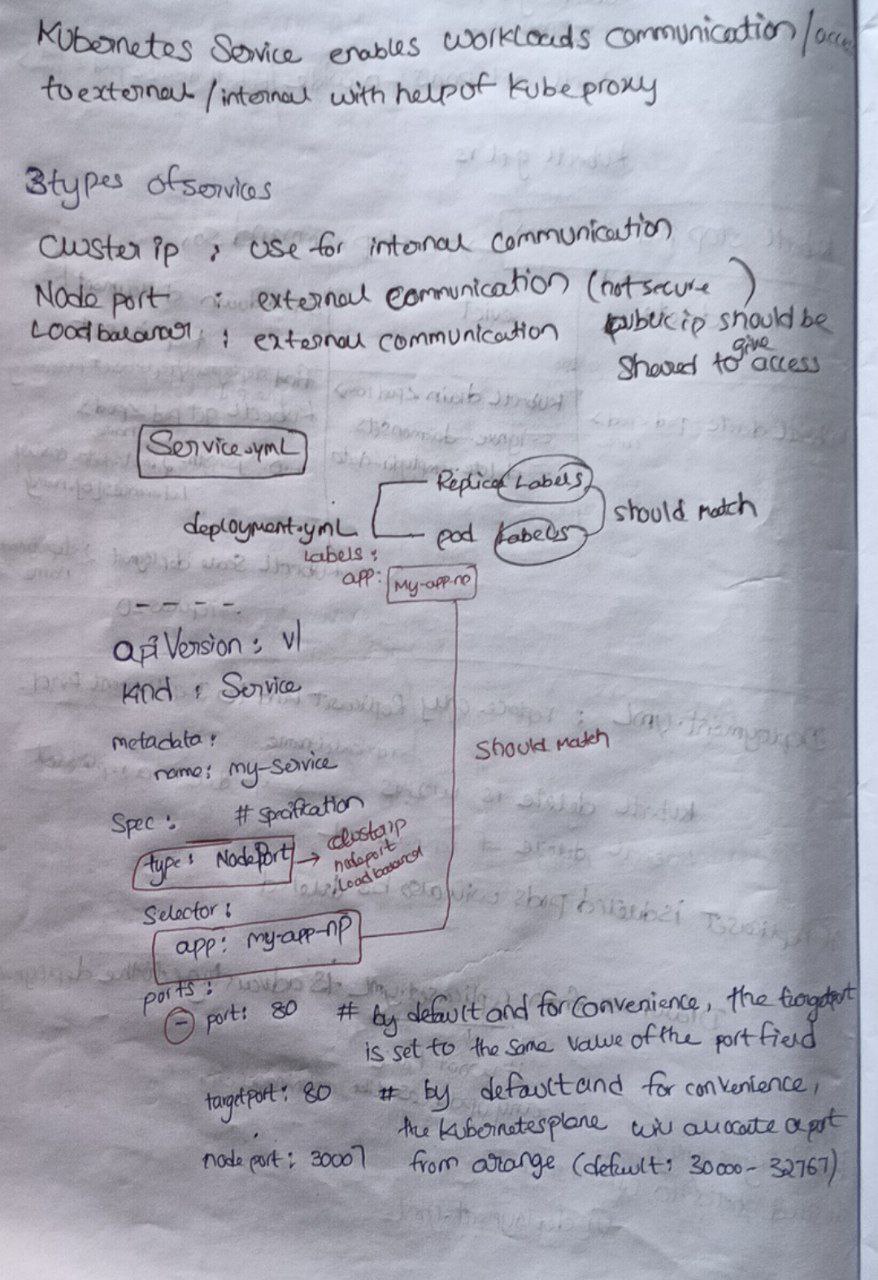 Kubernetes Service enables workloads communication/acce
to external/internal with help of Kube proxy
3 types of services
Cluster ip : use for internal communication
Node port : external communication (not secure)
Load balancer : external communication public ip should be
shared to give access
Service.yml
Replica Labels
deployment.yml should match
pod Labels
Labels:
app: my-app-np
- - - -.
apiVersion: v1
kind : Service
metadata:
name: my-service
should match
Spec: # specification
type: NodePort → clusterip
nodeport
loadbalancer
Selector:
app: my-app-np
ports:
- port: 80 # by default and for convenience, the targetport
is set to the same value of the port field
targetport: 80 # by default and for convenience,
the Kubernetes plane will allocate a port
node port: 30007 from a range (default: 30000-32767)